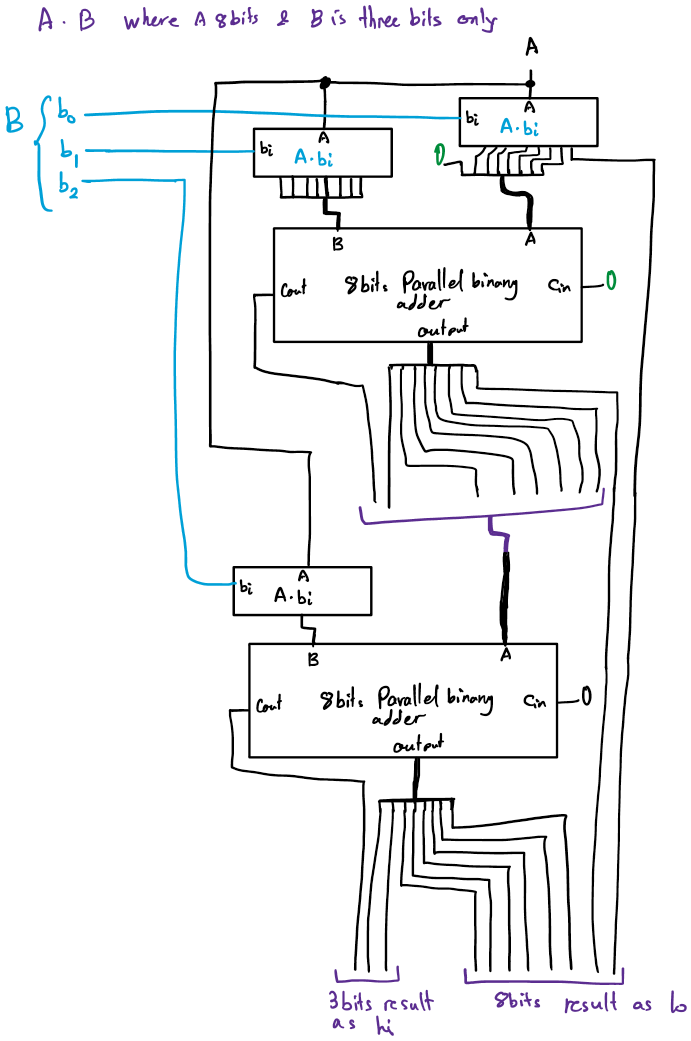 A . B where A 8bits & B is three bits only
A
B { b0
b1
b2
bi A
A.bi
bi A
A.bi
0
B A
Cout 8bits Parallel binary adder Cin 0
output
A
bi A.bi
B A
Cout 8bits Parallel binary adder Cin 0
output
3bits result as hi
8bits result as lo